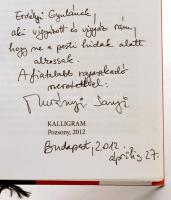 Erdélyi Gyulának,
aki vigyázott és vigyáz rám,
hogy ne a pesti hidak alatt
alvassak.
A fiatalabb
szeretettel:
Murányi Sanyi
KALLIGRAM
Pozsony, 2012
Budapest, 2012.
április 27.